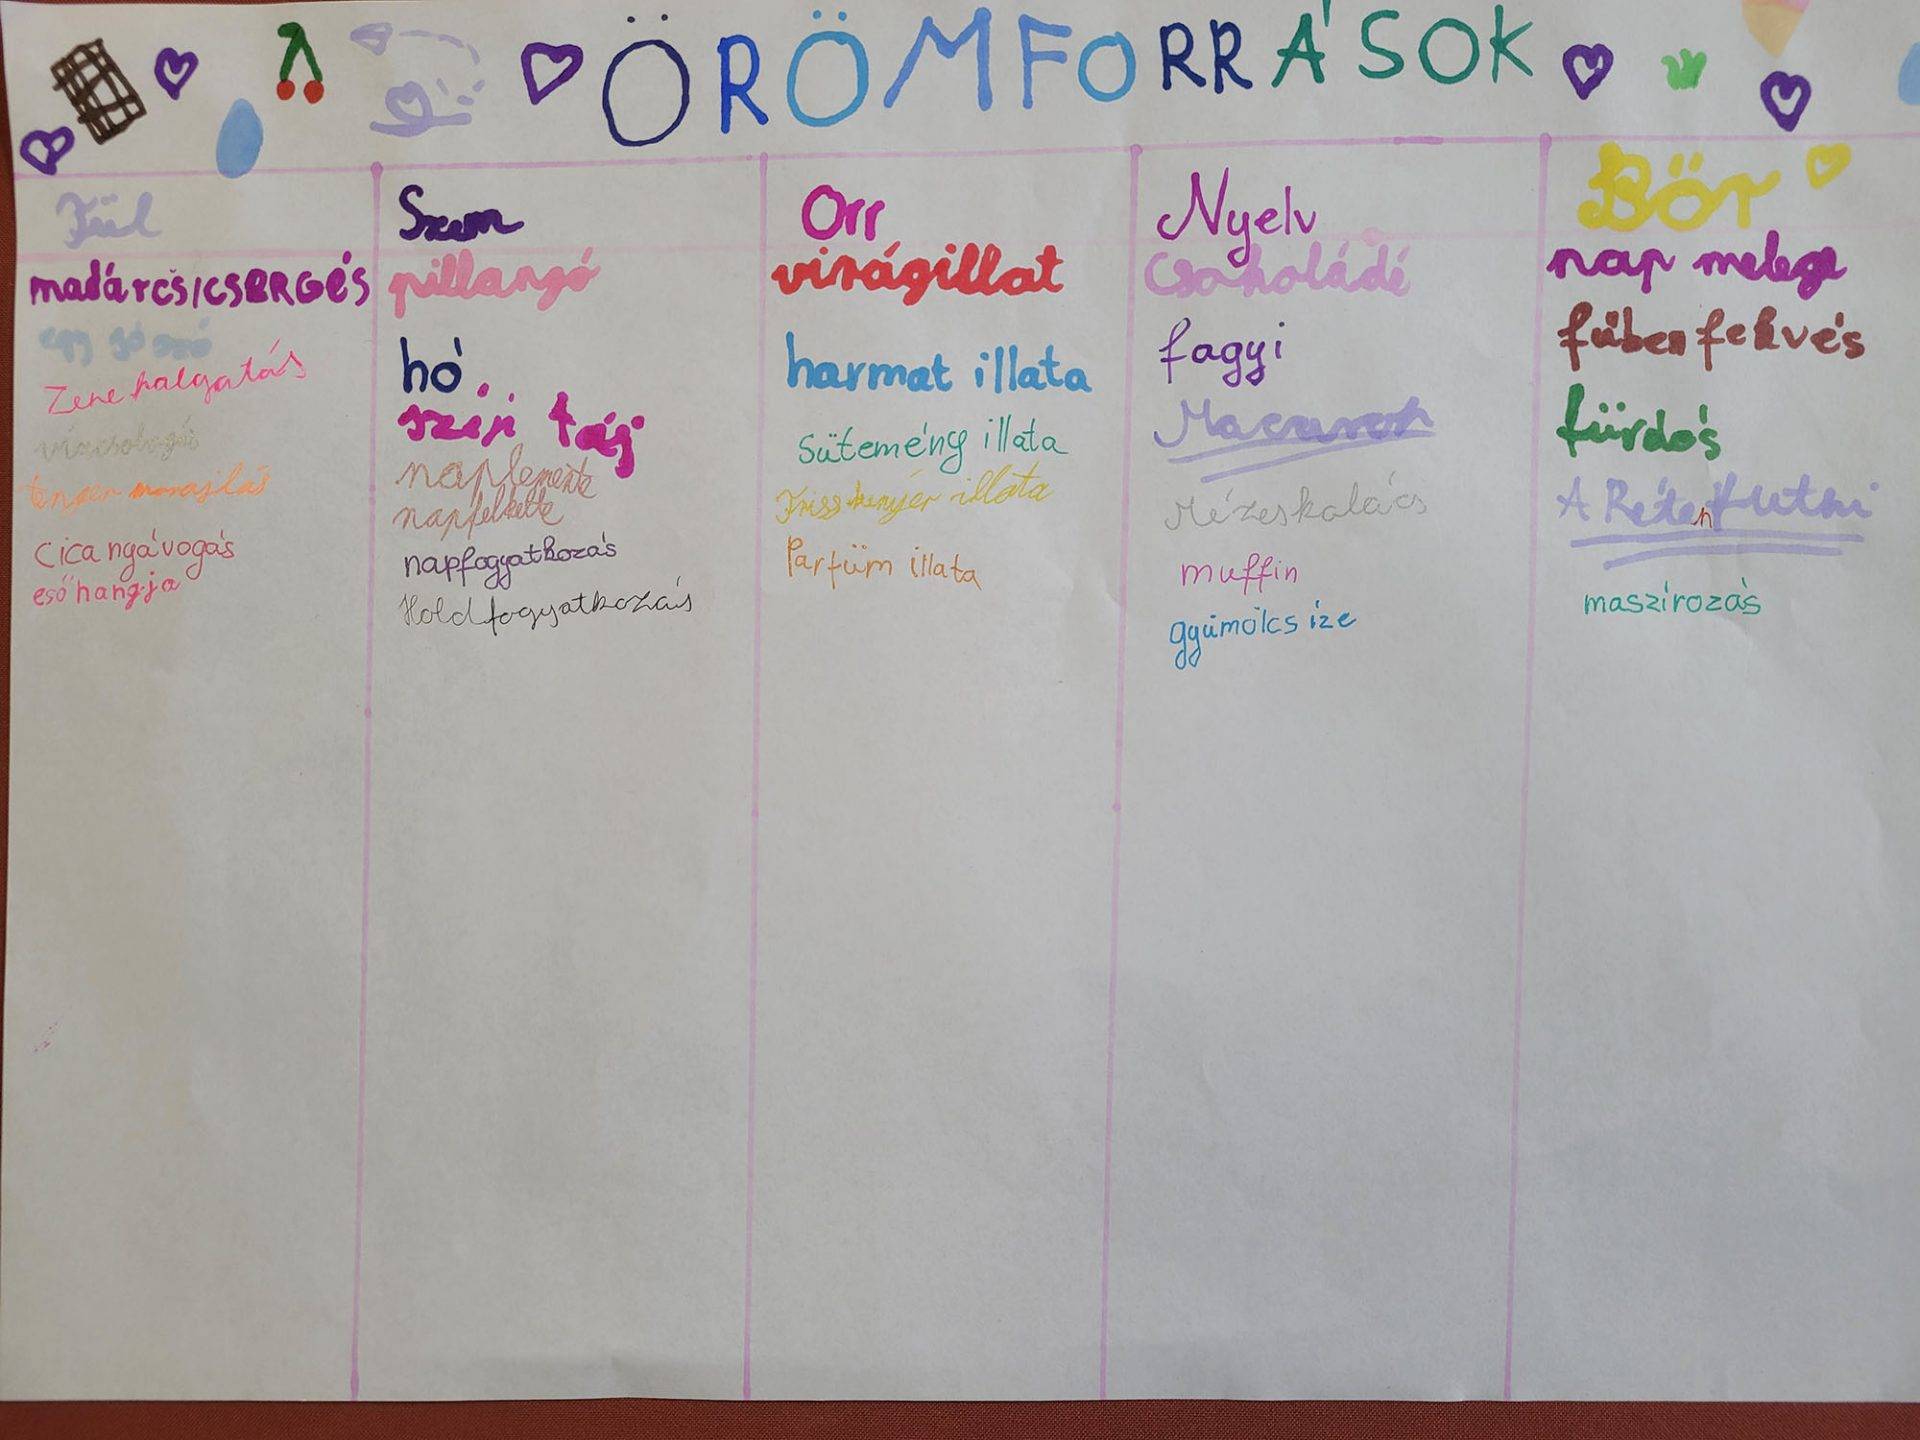 ÖRÖMFORRÁSOK
Fül
madárcs/CSERGÉS
egy jó szó
Zene halgatás
vízcsobogás
tenger morajlás
Cica nyávogás
eső hangja
Szem
pillangó
hó
szép táj
naplemente
napfelkelte
napfogyatkozás
Hold fogyatkozás
Orr
virágillat
harmat illata
Sütemény illata
Friss kenyér illata
Parfüm illata
Nyelv
Csokoládé
fagyi
Macaron
Mézeskalács
muffin
gyümölcs íze
Bőr
nap melege
fűben fekvés
fürdés
A Réten futni
maszírozás